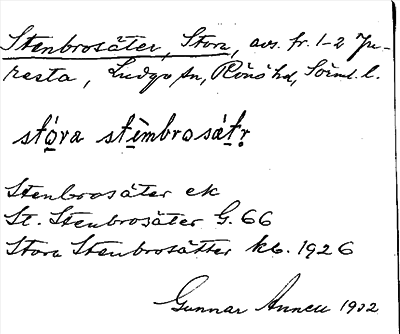 Stenbrosäter, Stora, avs. fr. 1-2 Ju-
resta, Ludgo sn, Rönö hd, Sörml. l.
stóra stèmbrosä́tr
Stenbrosäter ek
St. Stenbrosäter G. 66
Stora Stenbrosätter kb. 1926
Gunnar 1932